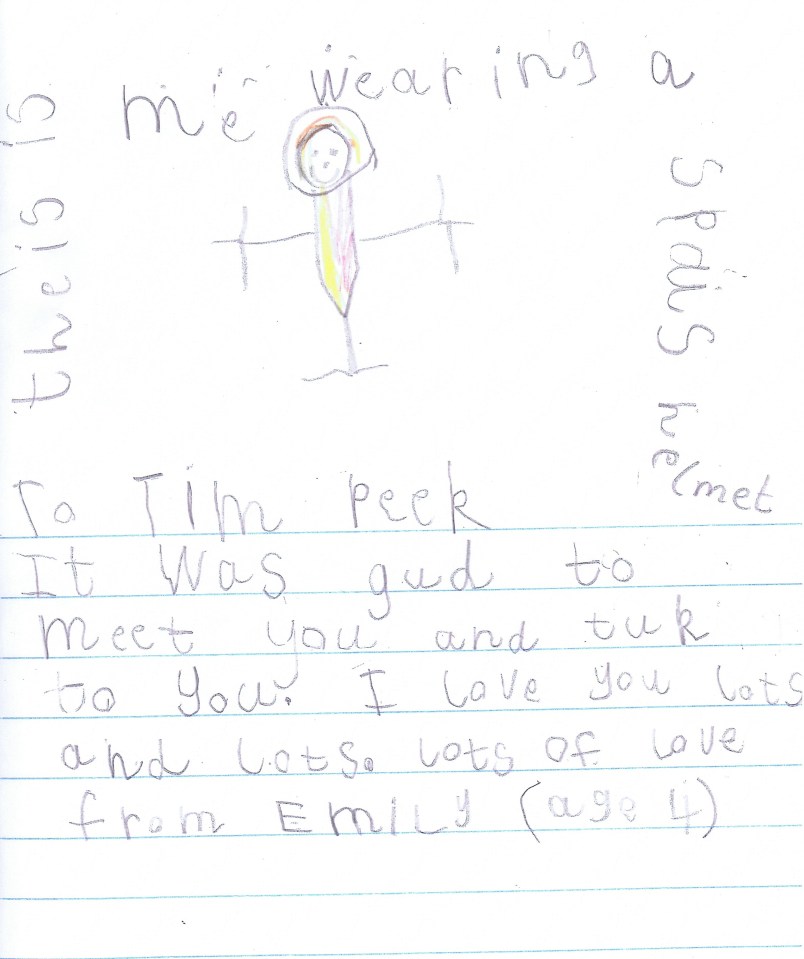 theis is
me wearing a
Spais
helmet
To Tim peek
It was gud to
meet you and tuk
to you. I love you lots
and lots. lots of love
from EmILy (age 4)